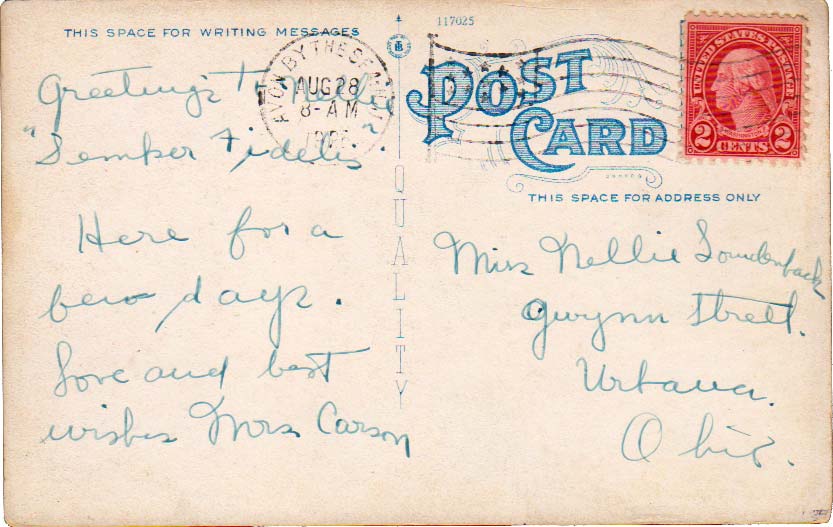 THIS SPACE FOR WRITING MESSAGES
Greetings to Nellie
"Semper Fidelis".
Here for a
few days.
Love and best
wishes Mrs Carson
AVON BY THE SEA
AUG 28
8-AM
QUALITY
117025
POST
CARD
THIS SPACE FOR ADDRESS ONLY
UNITED STATES POSTAGE
WASHINGTON
2 CENTS 2
Miss Nellie Loudenback
Gwynn Street.
Urbana.
Ohio.